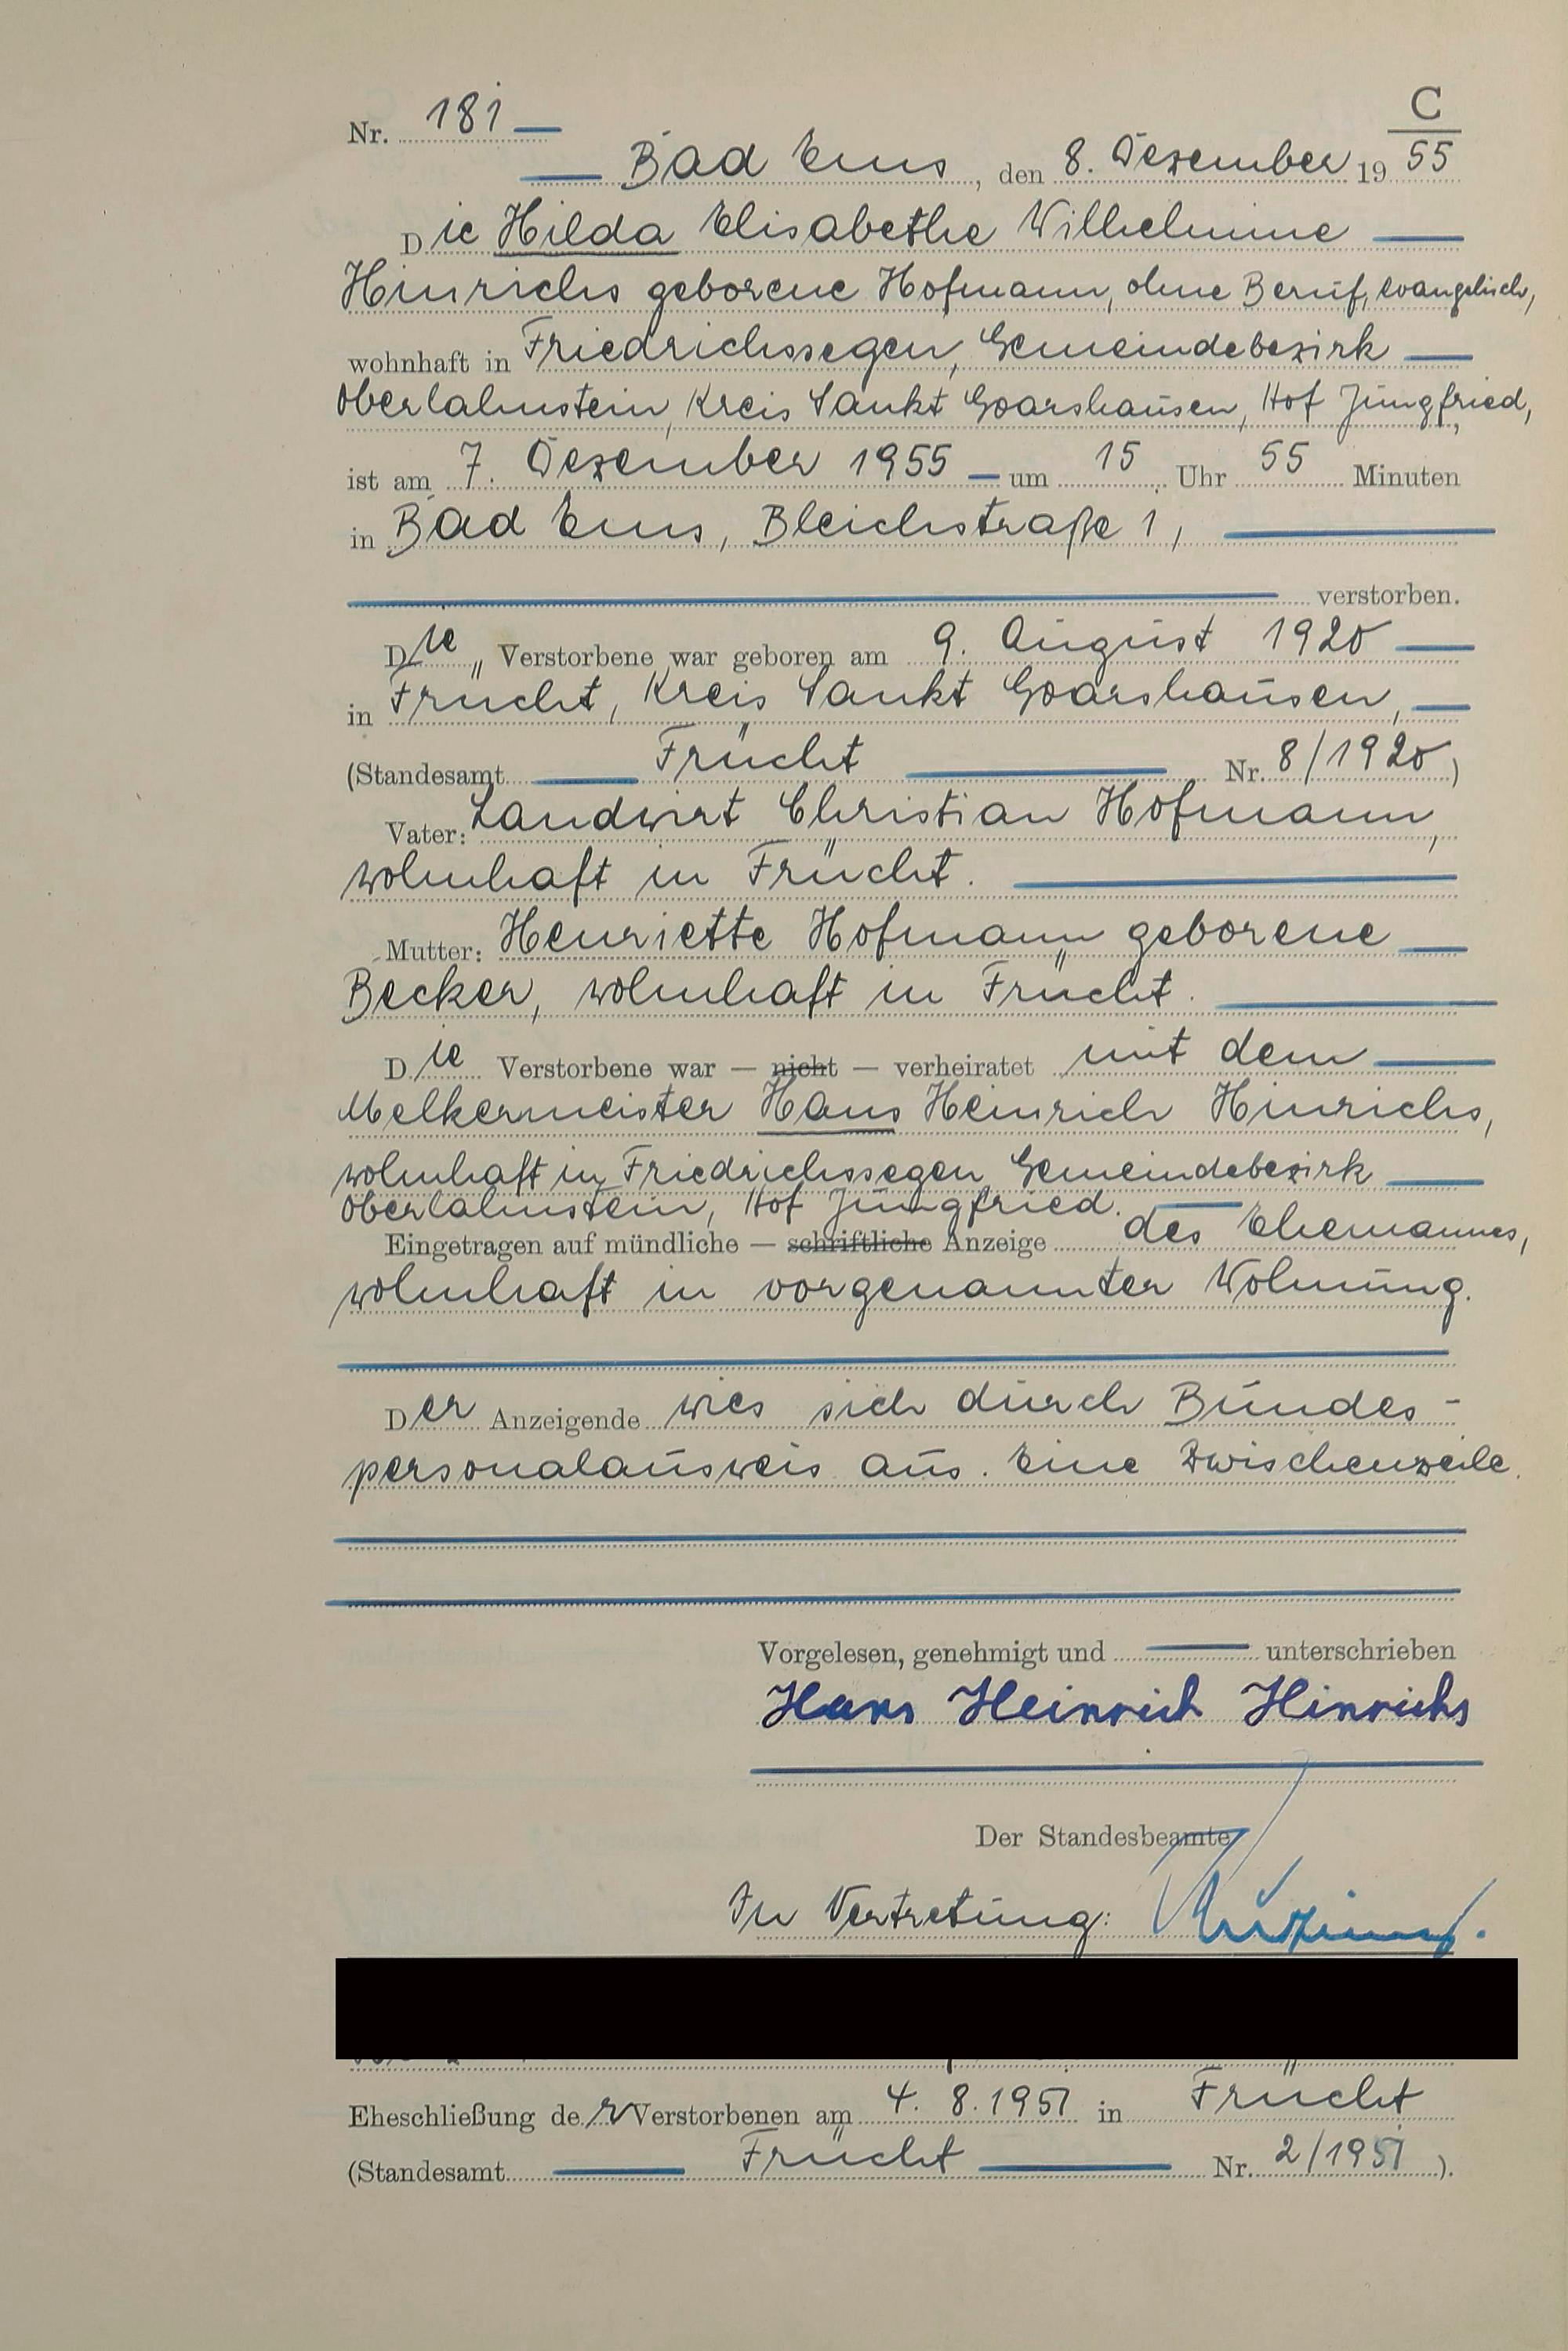 Nr. 181
C
Bad Ems, den 8. Dezember 1955
Die Hilda Elisabethe Wilhelmine
Hinrichs geborene Hofmann, ohne Beruf, evangelisch,
wohnhaft in Friedrichssegen, Gemeindebezirk
Oberlahnstein, Kreis Sankt Goarshausen, Hof Jungfried,
ist am 7. Dezember 1955 um 15 Uhr 55 Minuten
in Bad Ems, Bleichstraße 1,
verstorben.
Die Verstorbene war geboren am 9. August 1920
in Frücht, Kreis Sankt Goarshausen,
(Standesamt Frücht Nr. 8/1920)
Vater: Landwirt Christian Hofmann,
wohnhaft in Frücht.
Mutter: Henriette Hofmann geborene
Becker, wohnhaft in Frücht.
Die Verstorbene war — nicht — verheiratet mit dem
Melkermeister Hans Heinrich Hinrichs,
wohnhaft in Friedrichssegen, Gemeindebezirk
Oberlahnstein, Hof Jungfried.
Eingetragen auf mündliche — schriftliche Anzeige des Ehemannes,
wohnhaft in vorgenannter Wohnung.
Der Anzeigende wies sich durch Bundes-
personalausweis aus. Eine Zwischenzeile.
Vorgelesen, genehmigt und unterschrieben
Hans Heinrich Hinrichs
Der Standesbeamte
In Vertretung:
Eheschließung der Verstorbenen am 4. 8. 1951 in Frücht
(Standesamt Frücht Nr. 2/1951).